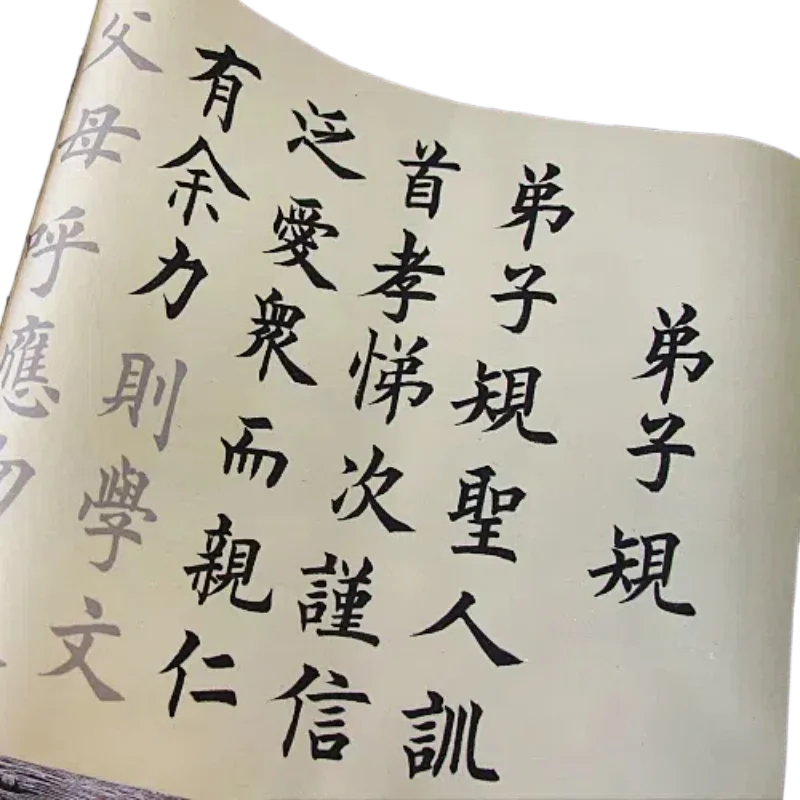 弟子規
弟子規聖人訓
首孝悌次謹信
泛愛衆而親仁
有余力則學文
父母呼應勿